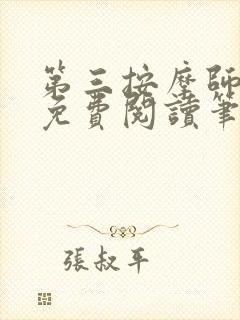 第三按摩師
免費閱讀筆
張叔平